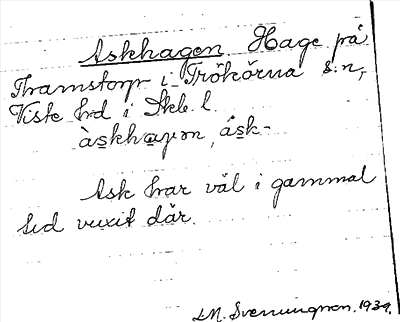 Askhagen. Hage på
Thamstorp i Trökörna s:n,
Viste hrd i Skb. l.
àskhagən, ásk-
Ask har väl i gammal
tid vuxit där.
L.M. Svenungsson. 1939.